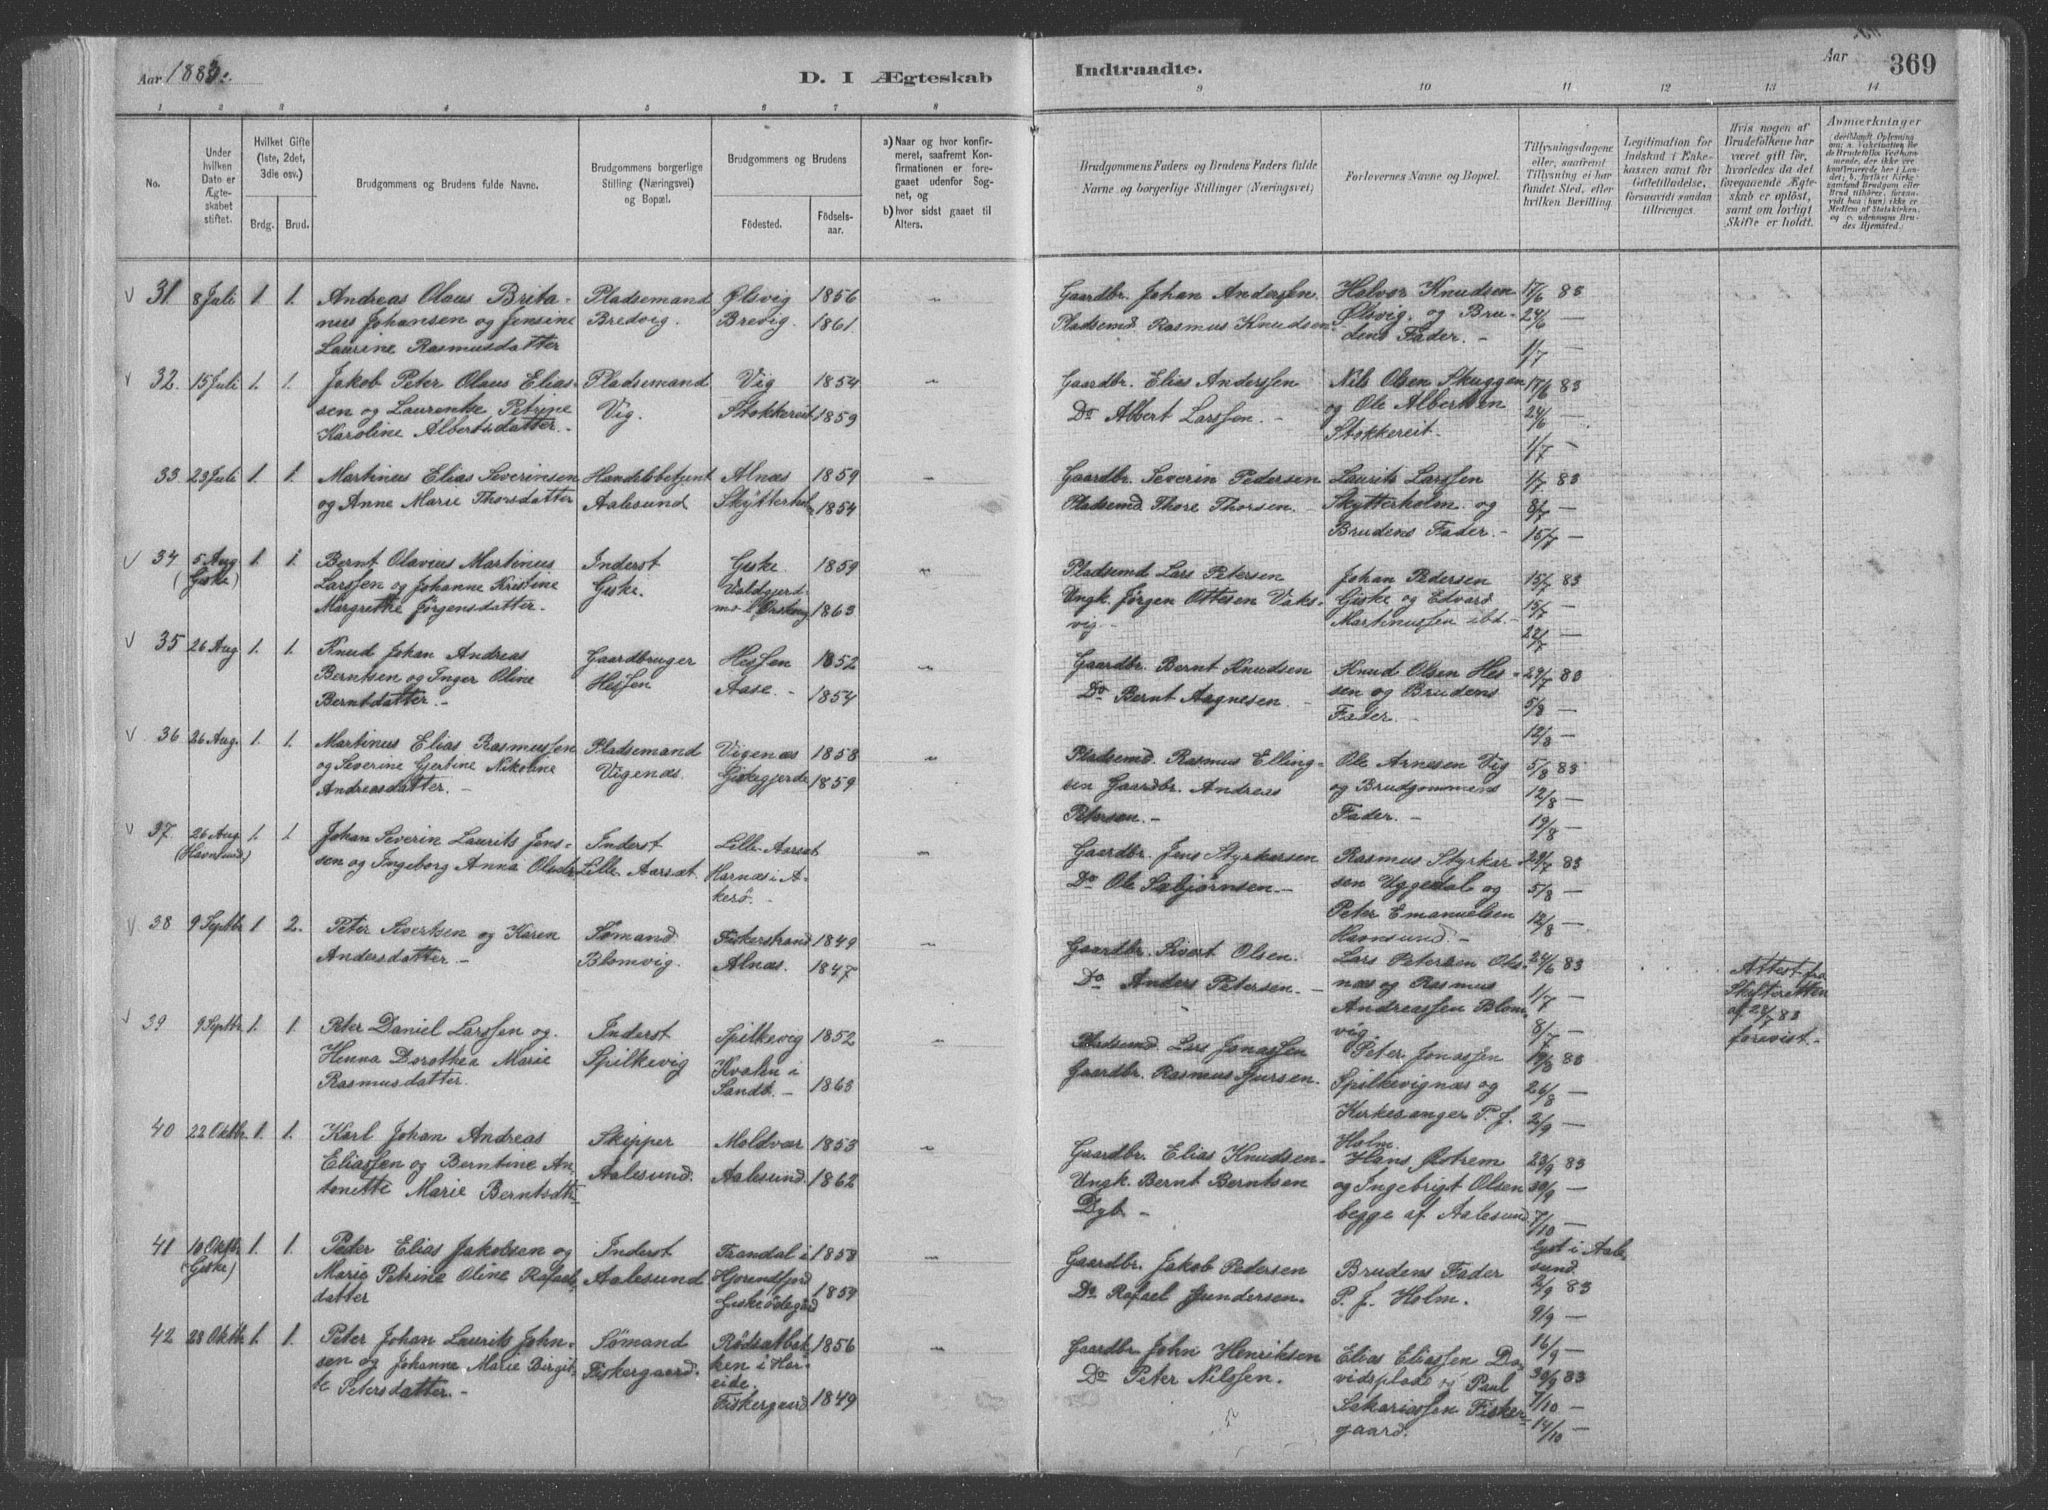 Aar 1883.
D. I Ægteskab
Indtraadte.
Aar
369
1 2 3 4 5 6 7 8 9 10 11 12 13 14
No.
Under hvilken Dato er Ægteskabet stiftet.
Hvilket Gifte (1ste, 2det, 3die osv.)
Brdg. Brud.
Brudgommens og Brudens fulde Navne.
Brudgommens borgerlige Stilling (Næringsvei) og Bopæl.
Brudgommers og Brudens
Födested. Födsels-aar.
a) Naar og hvor konfirmeret, saafremt Konfirmationen er foregaaet udenfor Sognet, og
b) hvor sidst gaaet til Alters.
Brudgommens Faders og Brudens Faders fulde Navne og borgerlige Stillinger (Næringsvei)
Forlovernes Navne og Bopæl.
Tillysningsdagene eller, saafremt Tillysning ei har fundet Sted, efter hvilken Bevilling.
Legitimation for Indskud i Enkekassen samt for Giftetilladelse, forsaavidt saadan tiltrænges.
Hvis nogen af Brudefolkene har været gift för, hvorledes da det foregaaende Ægteskab er oplöst, samt om lovligt Skifte er holdt.
Anmærkninger
31 8 Juli 1. 1. Andreas Olaus Brita-
nus Johansen og Jensine
Laurine Rasmusdatter
Pladsemand
Bredvig.
Ølsvig 1856
Brevig. 1861
Gaardbr. Johan Anderssen.
Pladsemd. Rasmus Knudsen.
Halvor Knudsen
Ølsvig. og Bru-
dens Fader. -
17/6 83
24/6 —
1/7 —
32. 15 Juli 1. 1. Jakob Peter Olaus Elias-
sen og Laurentse Petrine
Karoline Albertsdatter. -
Pladsemand
Vig.
Vig 1854
Stokkereit 1859
Gaardbr. Elias Anderssen
Do Albert Larssen. -
Nils Olsen Skuggen
og Ole Albertsen
Stokkereit. -
17/6 83
24/6 —
1/7 —
33. 23 Juli 1. 1. Martinus Elias Severinsen
og Anne Marie Thorsdatter
Handelsbetjent
Aalesund
Alnæs 1859
Skytterhol 1854
Gaardbr. Severin Pedersen
Pladsemd. Thore Thorsen. -
Laurits Larssen
Skytterholm. og
Brudens Fader. -
1/7 83
8/7 —
15/7 —
34 5 Aug (Giske) 1. 1. Bernt Olavius Martinus
Larssen og Johanne Kristine
Margrethe Jørgensdatter. -
Inderst
Giske.
Giske. 1859
Valdgjerd-
1863
Pladsemd Lars Petersen
Ungk. Jørgen Ottesen Vaks-
vig. -
Johan Pedersen
Giske og Edvard
Martinussen ibd. -
15/7 83
15/7 —
22/7 —
35 26 Aug 1. 1. Knud Johan Andreas
Berntsen og Inger Oline
Berntdatter. -
Gaardbruger
Hessen
Hessen 1852
Aase. - 1854
Gaardbr. Bernt Knudsen
Do Bernt Aagnesen. -
Knud Olsen Hes-
sen og Brudens
Fader. -
29/7 83
5/8 —
12/8 —
36 26 Aug. 1. 1. Martinus Elias Rasmussen
og Severine Gjertine Nikoline
Andreasdatter. -
Pladsemand
Vigenæs.
Vigenæs 1858
Giskegjerde 1859
Pladsemd. Rasmus Elling-
sen Gaardbr. Andreas
Petersen. -
Ole Arnesen Vig
og Brudgommens
Fader. -
5/8 83
12/8 —
19/8 —
37. 26 Aug. (Havnsund) 1. 1. Johan Severin Laurits Jens-
sen og Ingeborg Anna Olsdtr
Inderst
Lille Aarsæt.
Lille Aarsæt
Harnæs i A-
kerö. -
Gaardbr. Jens Styrkersen
Do Ole Sæbjørnsen. -
Rasmus Styrker-
sen Uggedal og
Peter Emanuelsen
Havnsund. -
29/7 83
5/8 —
12/8 —
38 9 Septbr 1 2. Peter Sivertsen og Karen
Andersdatter. -
Sømand
Blomvig.
Fiskerstrand 1849
Alnæs. 1847
Gaardbr. Sivert Olsen.
Do Anders Petersen. -
Lars Petersen Oks-
næs og Rasmus
Andreassen Blom-
vig.
24/6 83
1/7 —
8/7 —
Attest fra
Skifteretten
af 24/7 83
forevist. -
39 9 Septbr 1. 1. Peter Daniel Larssen og
Henna Dorothea Marie
Rasmusdatter.
Inderst
Spilkevig
Spilkevig 1852
Kvalen i
Sandö. - 1863
Pladsemd. Lars Jonassen
Gaardbr. Rasmus Sjursen.
Peter Jonassen
Spilkevignæs og
Kirkesanger P. J.
Holm.
19/8 83
26/8 —
2/9 —
40 22 Oktbr. 1. 1. Karl Johan Andreas
Eliassen og Berntine An-
tonette Marie Berntsdtr
Skipper
Aalesund.
Moldvær 1853
Aalesund. 1862
Gaardbr. Elias Knudsen.
Ungk. Bernt Berntsen
Dyb. -
Hans Østrem
og Ingebrigt Olsen
begge af Aalesund.
23/9 83
30/9 —
7/10 —
41 10 Oktbr (Giske) 1. 1. Peder Elias Jakobsen og
Marie Petrine Oline Rafael-
datter
Inderst
Aalesund
Trandal i 1858
Hjørendfjord
Giskeødegård 1859
Gaardbr. Jakob Pedersen
Do Rafael Gundersen.
Brudens Fader
P. J. Holm.
Lyst i Aale-
sund.
2/9 83
9/9 —
16/9 —
42 28 Oktbr 1. 1. Peter Johan Laurits John-
sen og Johanne Marie Birgit-
te Petersdatter. -
Sømand
Fiskergaard.
Rödsætbak-
ken i Har-
eide. 1856
Fiskergaard 1849
Gaardbr. John Henriksen
Do Peter Nilssen.
Elias Eliassen Da-
vidsplads og Paul
Sakariassen Fisker-
gaard.
30/9 83
7/10 —
14/10 —